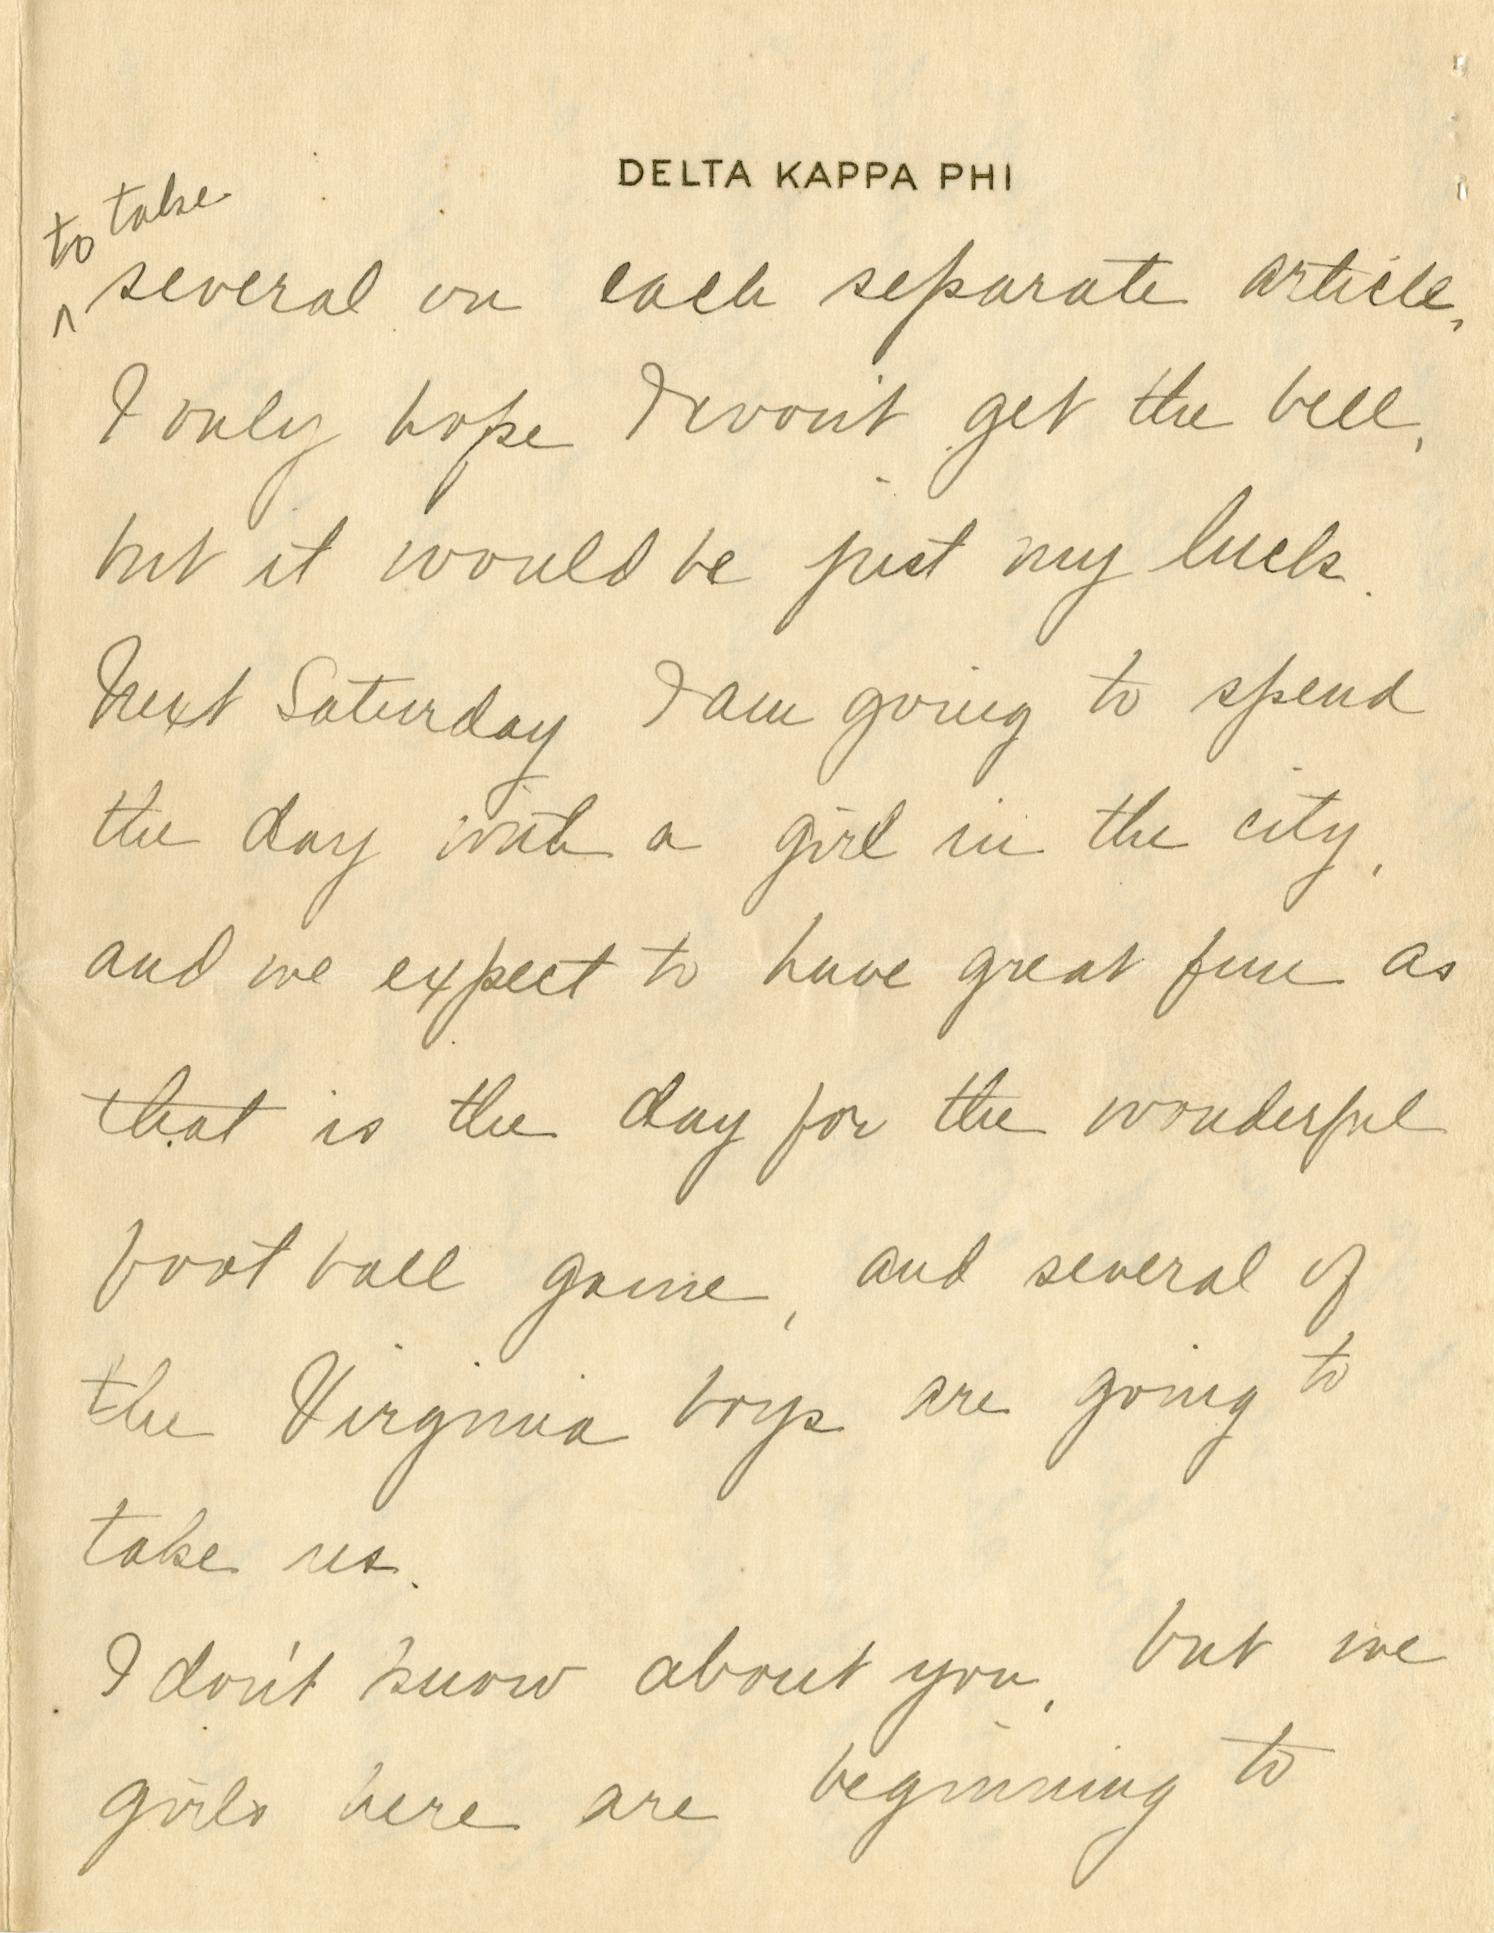 DELTA KAPPA PHI
to take
^ several on each separate article,
I only hope I won't get the bell,
but it would be just my luck.
Next Saturday I am going to spend
the day with a girl in the city,
and we expect to have great fun as
that is the day for the wonderful
foot ball game, and several of
the Virginia boys are going to
take us.
I don't know about you, but we
girls here are beginning to